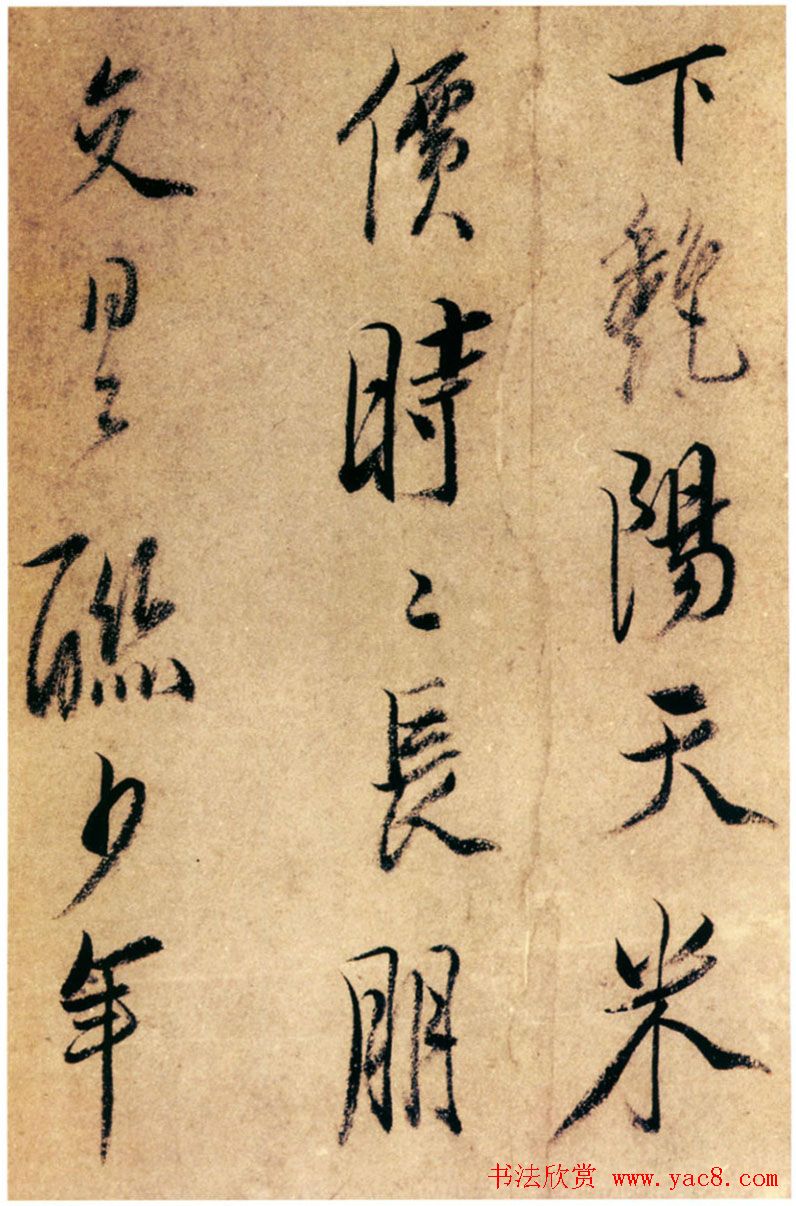 下艷陽天米
價時〻長朋
交日〻聯少年
书法欣赏 www.yac8.com